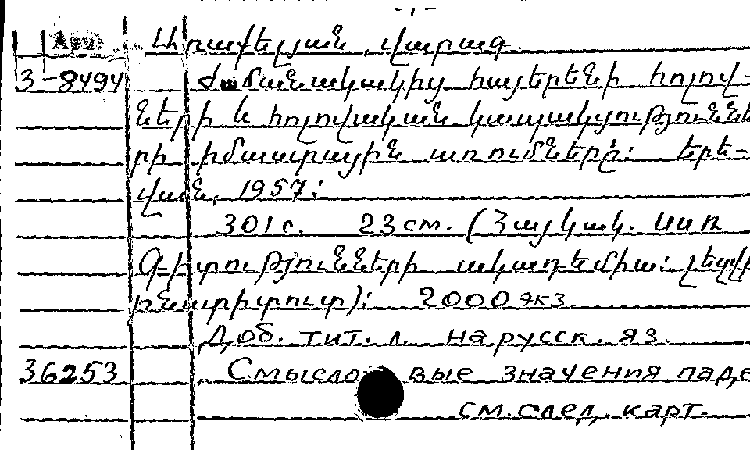 Առաքելյան, Վարագ
3-8494 Ժամանակակից հայերենի հոլով-
ների և հոլովական կապակցություննե
րի իմաստային առումները: Երե-
վան, 1957:
301 с. 23 см. (Հայկակ. ՍՍՌ
Գիտությունների ակադեմիա: Լեզվի
ինստիտուտ): 2000 экз.
Доб. тит. л. на русск. яз.
36253 Смысловые значения паде
см. след. карт.